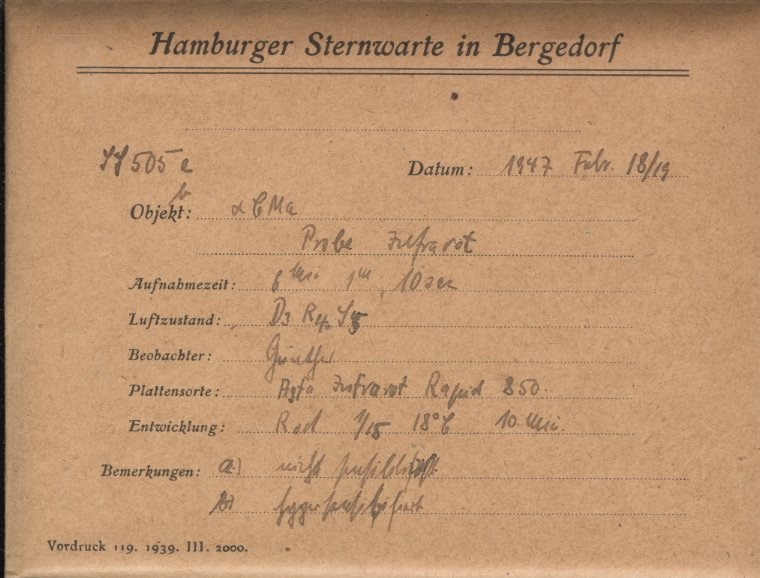 Hamburger Sternwarte in Bergedorf
505 a
Datum: 1947 Febr. 18/19
b
Objekt: α CMa
Probe Infrarot
Aufnahmezeit: 6 Min 1m, 10 sec
Luftzustand: D3
Beobachter: Günther
Plattensorte: Agfa Infrarot Rapid 850
Entwicklung: Rod 1/15 18°C 10 Min.
Bemerkungen: a) nicht
b)
Vordruck 119. 1939. III. 2000.